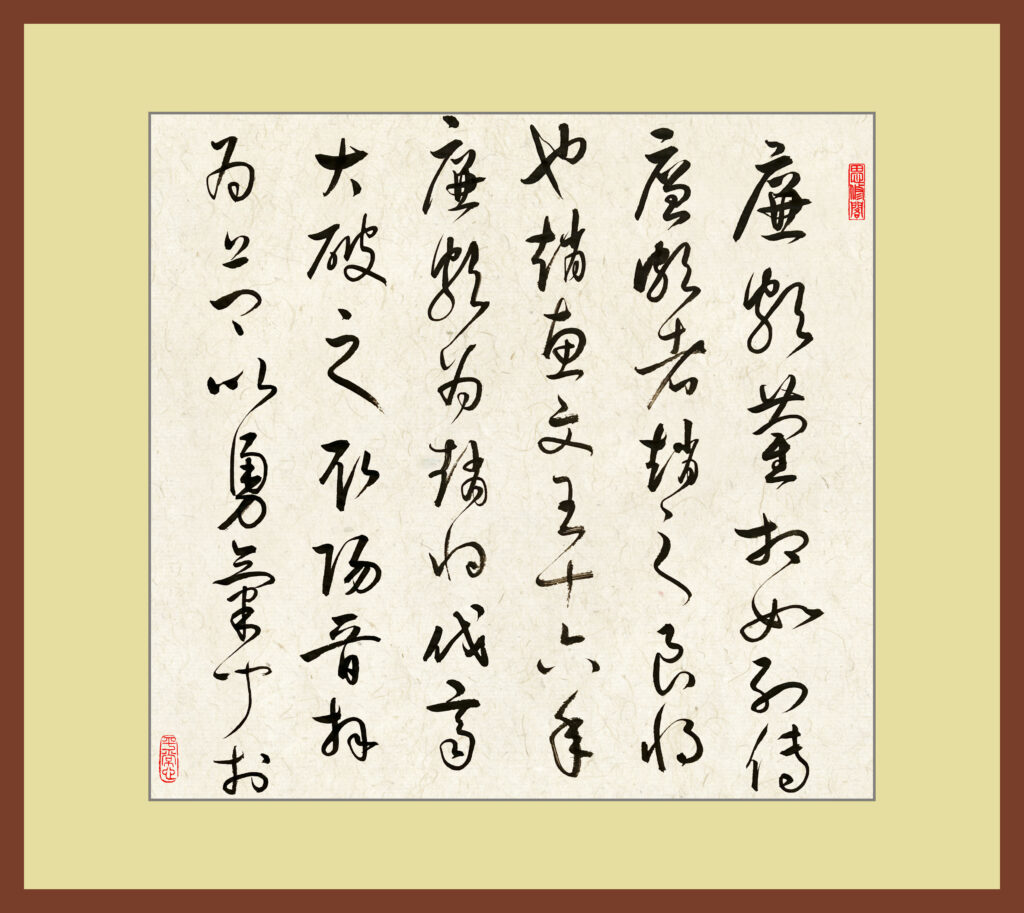 思修閣
廉頗藺相如列傳
廉頗者趙之良將
也趙惠文王十六年
廉頗為趙將伐齊
大破之取陽晉拜
為上卿以勇氣聞於
平常心